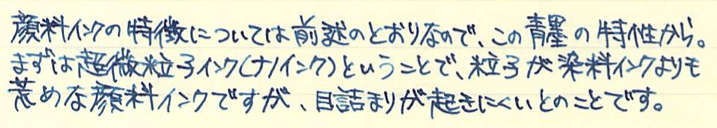 顔料インクの特徴については前述のとおりなので、この青墨の特性から。
まずは超微粒子インク(ナノインク)ということで、粒子が染料インクよりも
荒めな顔料インクですが、目詰まりが起きにくいとのことです。